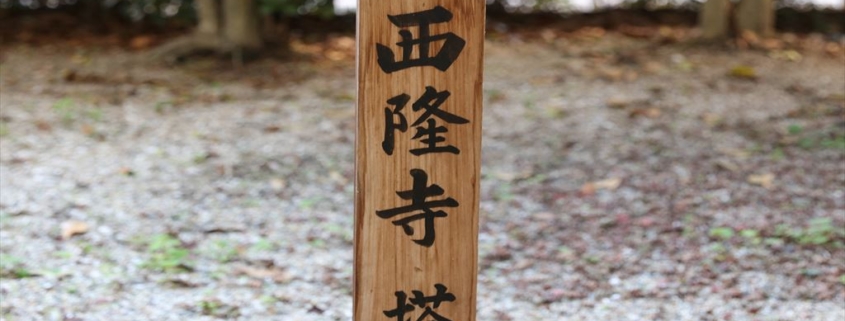 西隆寺塔